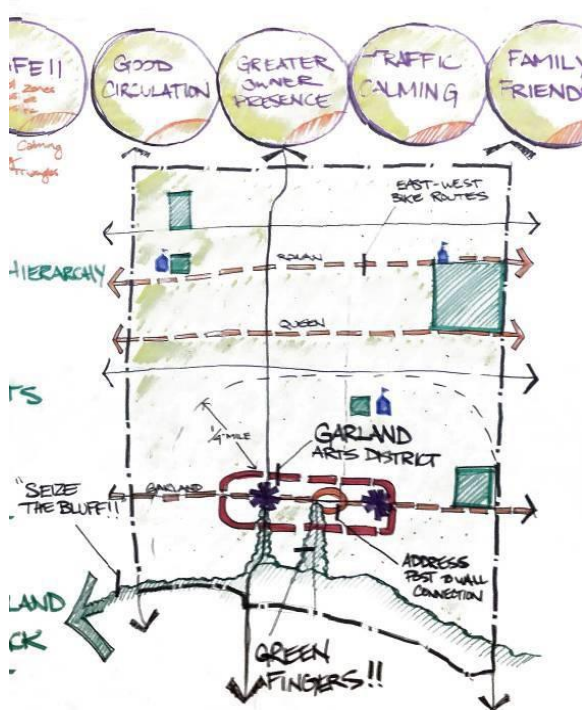 FE!!
zones
Calming
Triangles
GOOD
CIRCULATION
GREATER
OWNER
PRESENCE
TRAFFIC
CALMING
FAMILY
FRIEND
EAST-WEST
BIKE ROUTES
HIERARCHY
ROWAN
QUEEN
TS
1/4 MILE
GARLAND
ARTS DISTRICT
"SEIZE
THE BLUFF!!
GARLAND
ADDRESS
POST TO WALL
CONNECTION
LAND
CK
GREEN
FINGERS!!